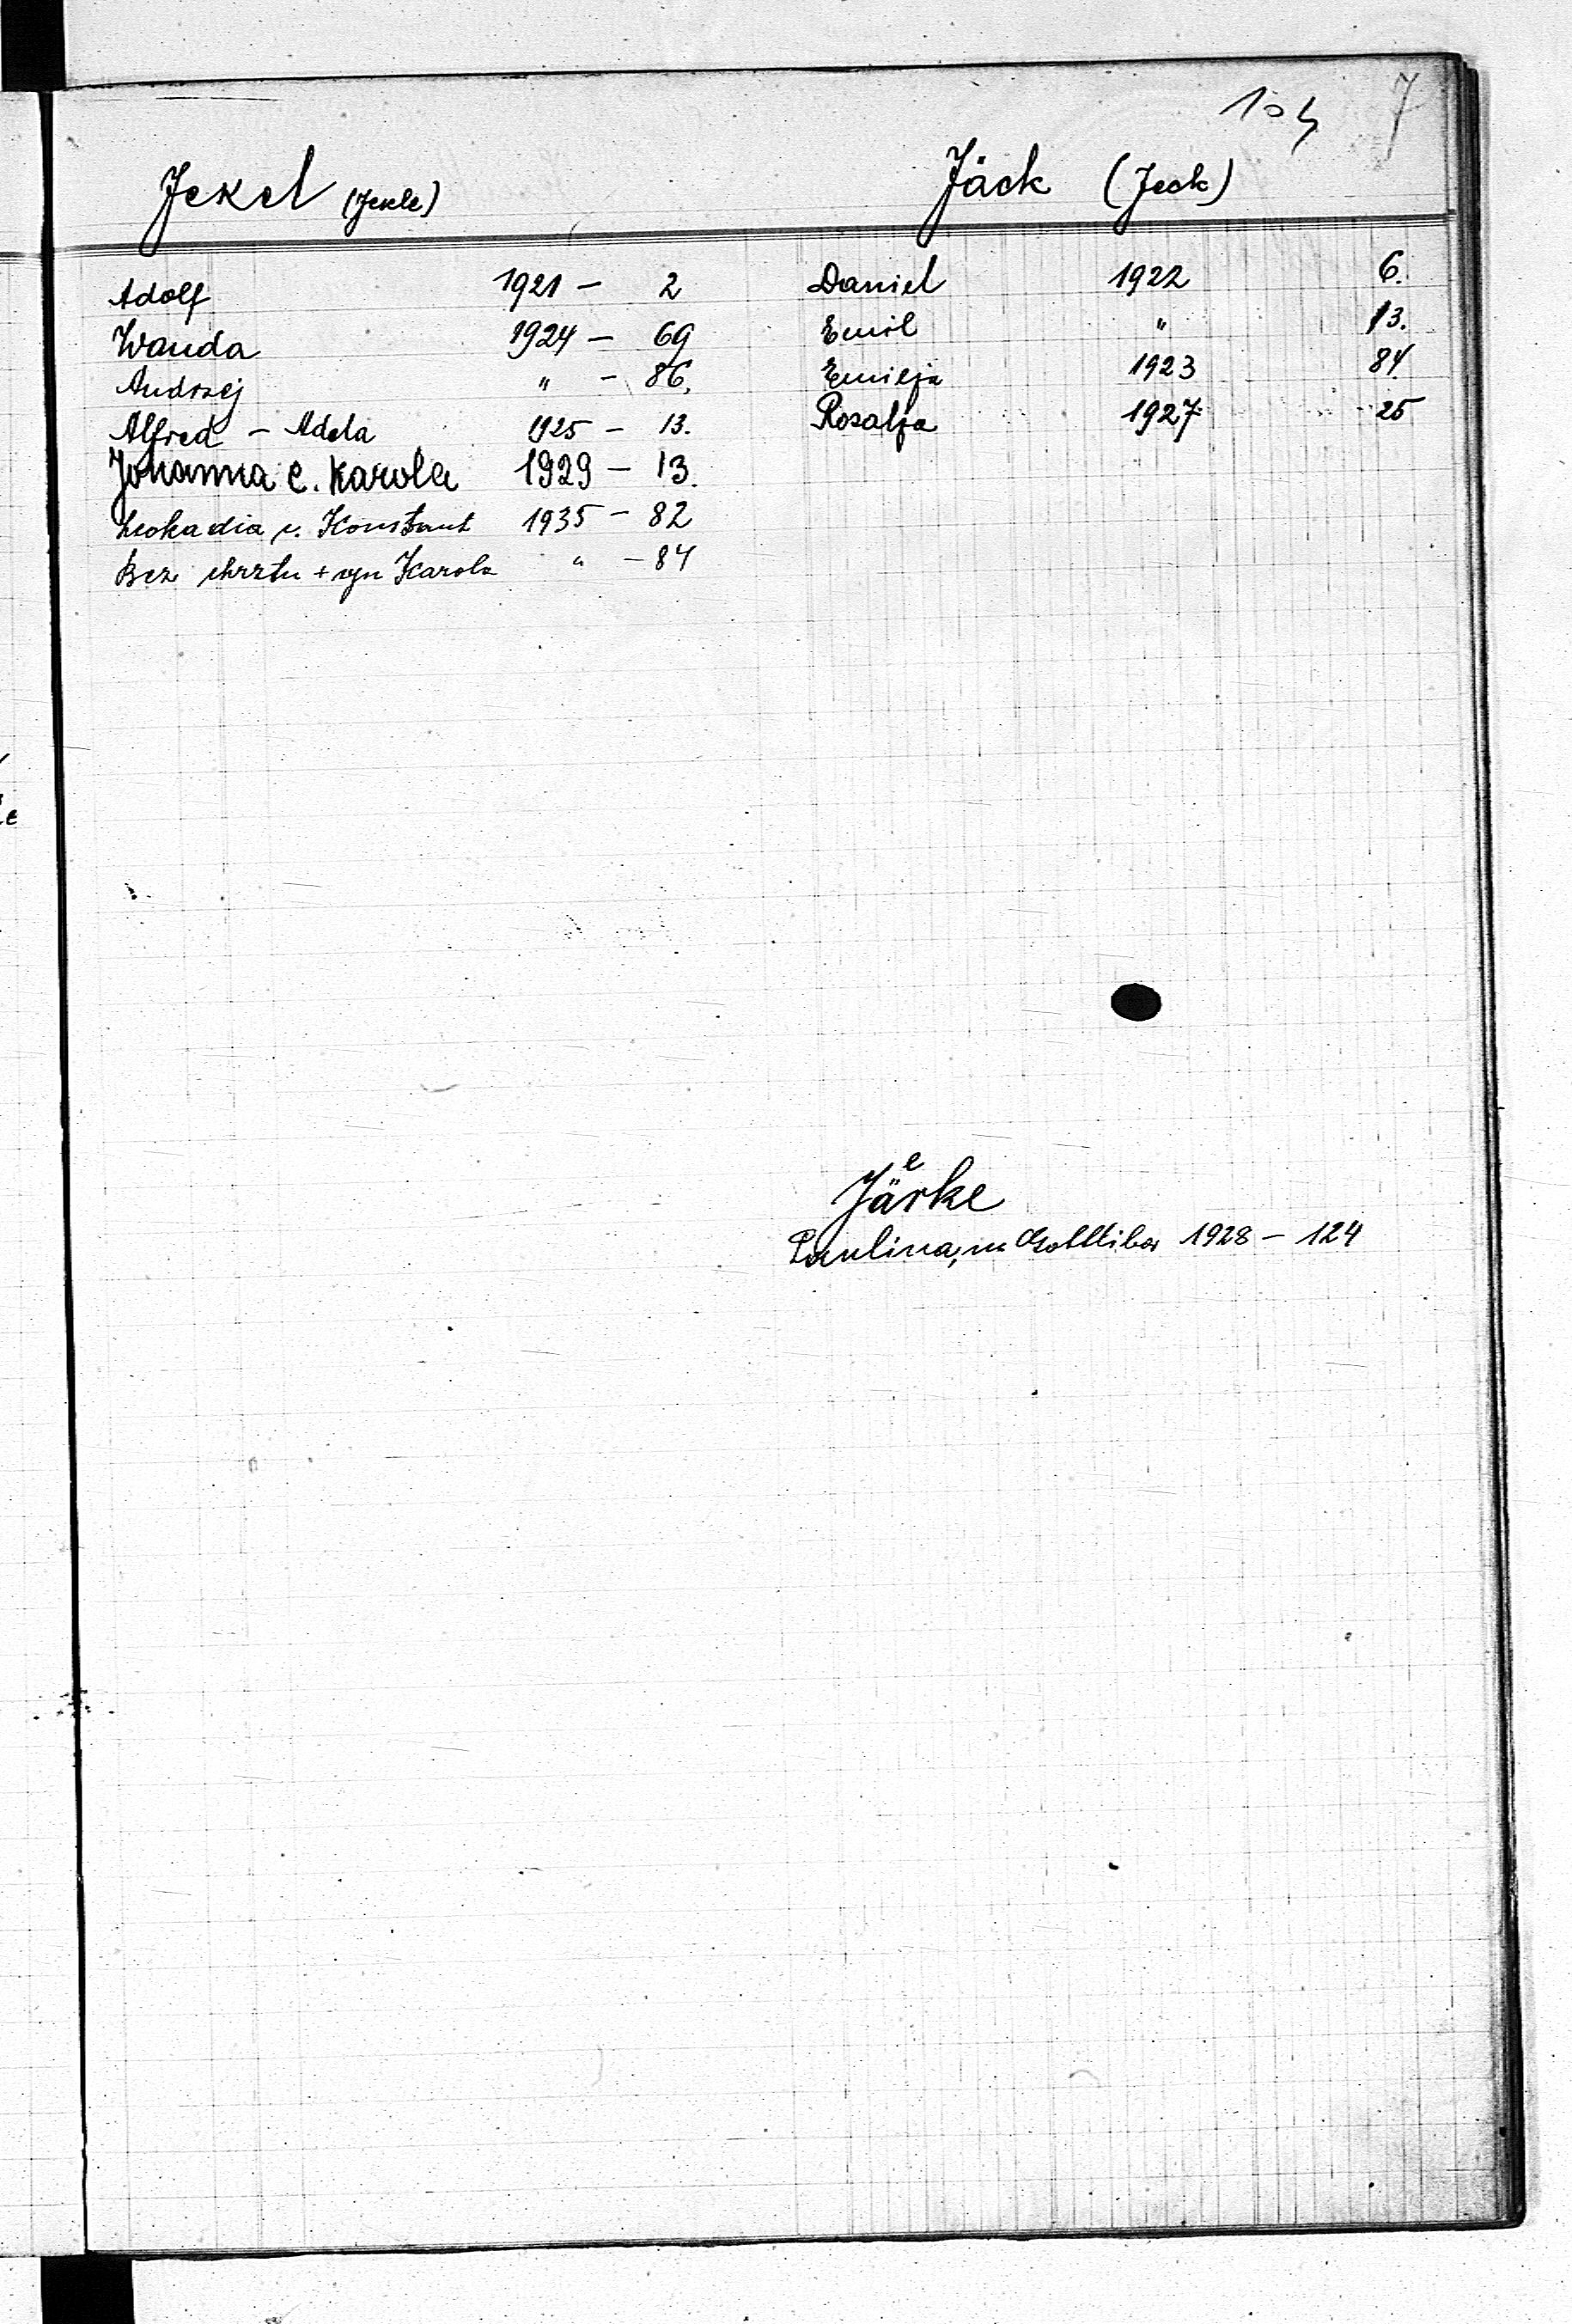 104 7
Jekel (Jekle)
Adolf 1921 – 2
Wanda 1924 – 69
Andrzej " – 86.
Alfred – Adela 1925 – 13.
Johanna c. Karola 1929 – 13.
Leokadia c. Konstant 1935 – 82
Bez chrztu + syn Karola " – 84
Jäck (Jeck)
Daniel 1922 6.
Emil " 13.
Emilja 1923 84.
Rosalja 1927 25
e
Järke
Paulina, Gottliba 1928 – 124